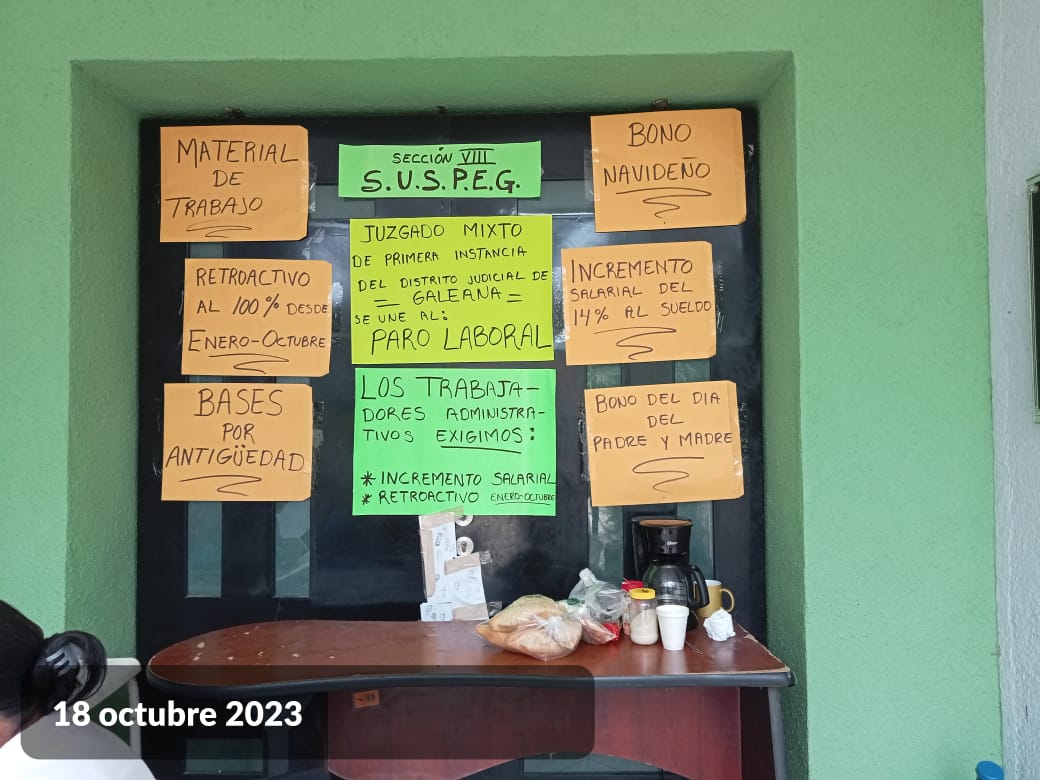 MATERIAL
DE
TRABAJO
SECCIÓN VIII
S.U.S.P.E.G.
BONO
NAVIDEÑO
RETROACTIVO
AL 100% DESDE
ENERO-OCTUBRE
JUZGADO MIXTO
DE PRIMERA INSTANCIA
DEL DISTRITO JUDICIAL DE
= GALEANA =
SE UNE AL:
PARO LABORAL
INCREMENTO
SALARIAL DEL
14% AL SUELDO
BASES
POR
ANTIGÜEDAD
LOS TRABAJA-
DORES ADMINISTRA-
TIVOS EXIGIMOS:
* INCREMENTO SALARIAL
* RETROACTIVO ENERO-OCTUBRE
BONO DEL DIA
DEL
PADRE Y MADRE
18 octubre 2023